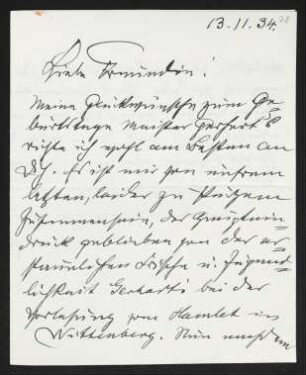 13. 11. 34.
Liebe Freundin!
Meine Glückwünsche zum Ge-
burtstage Meister Gerharts
richte ich wohl am besten an
Dich. Es ist mir von unsrem
letzten, leider zu kurzem
Zusammensein, der Hauptein-
druck geblieben von der er-
staunlichen Frische u. Jugend-
lichkeit Gerharts bei der
Vorlesung von Hamlet in
Wittenberg. Nun